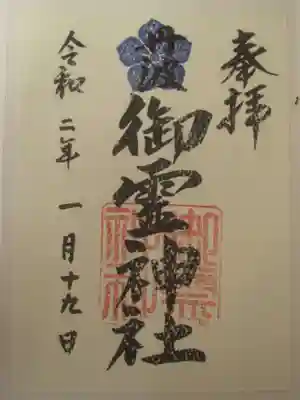 奉拝
丹波
御霊神社
令和二年一月十九日